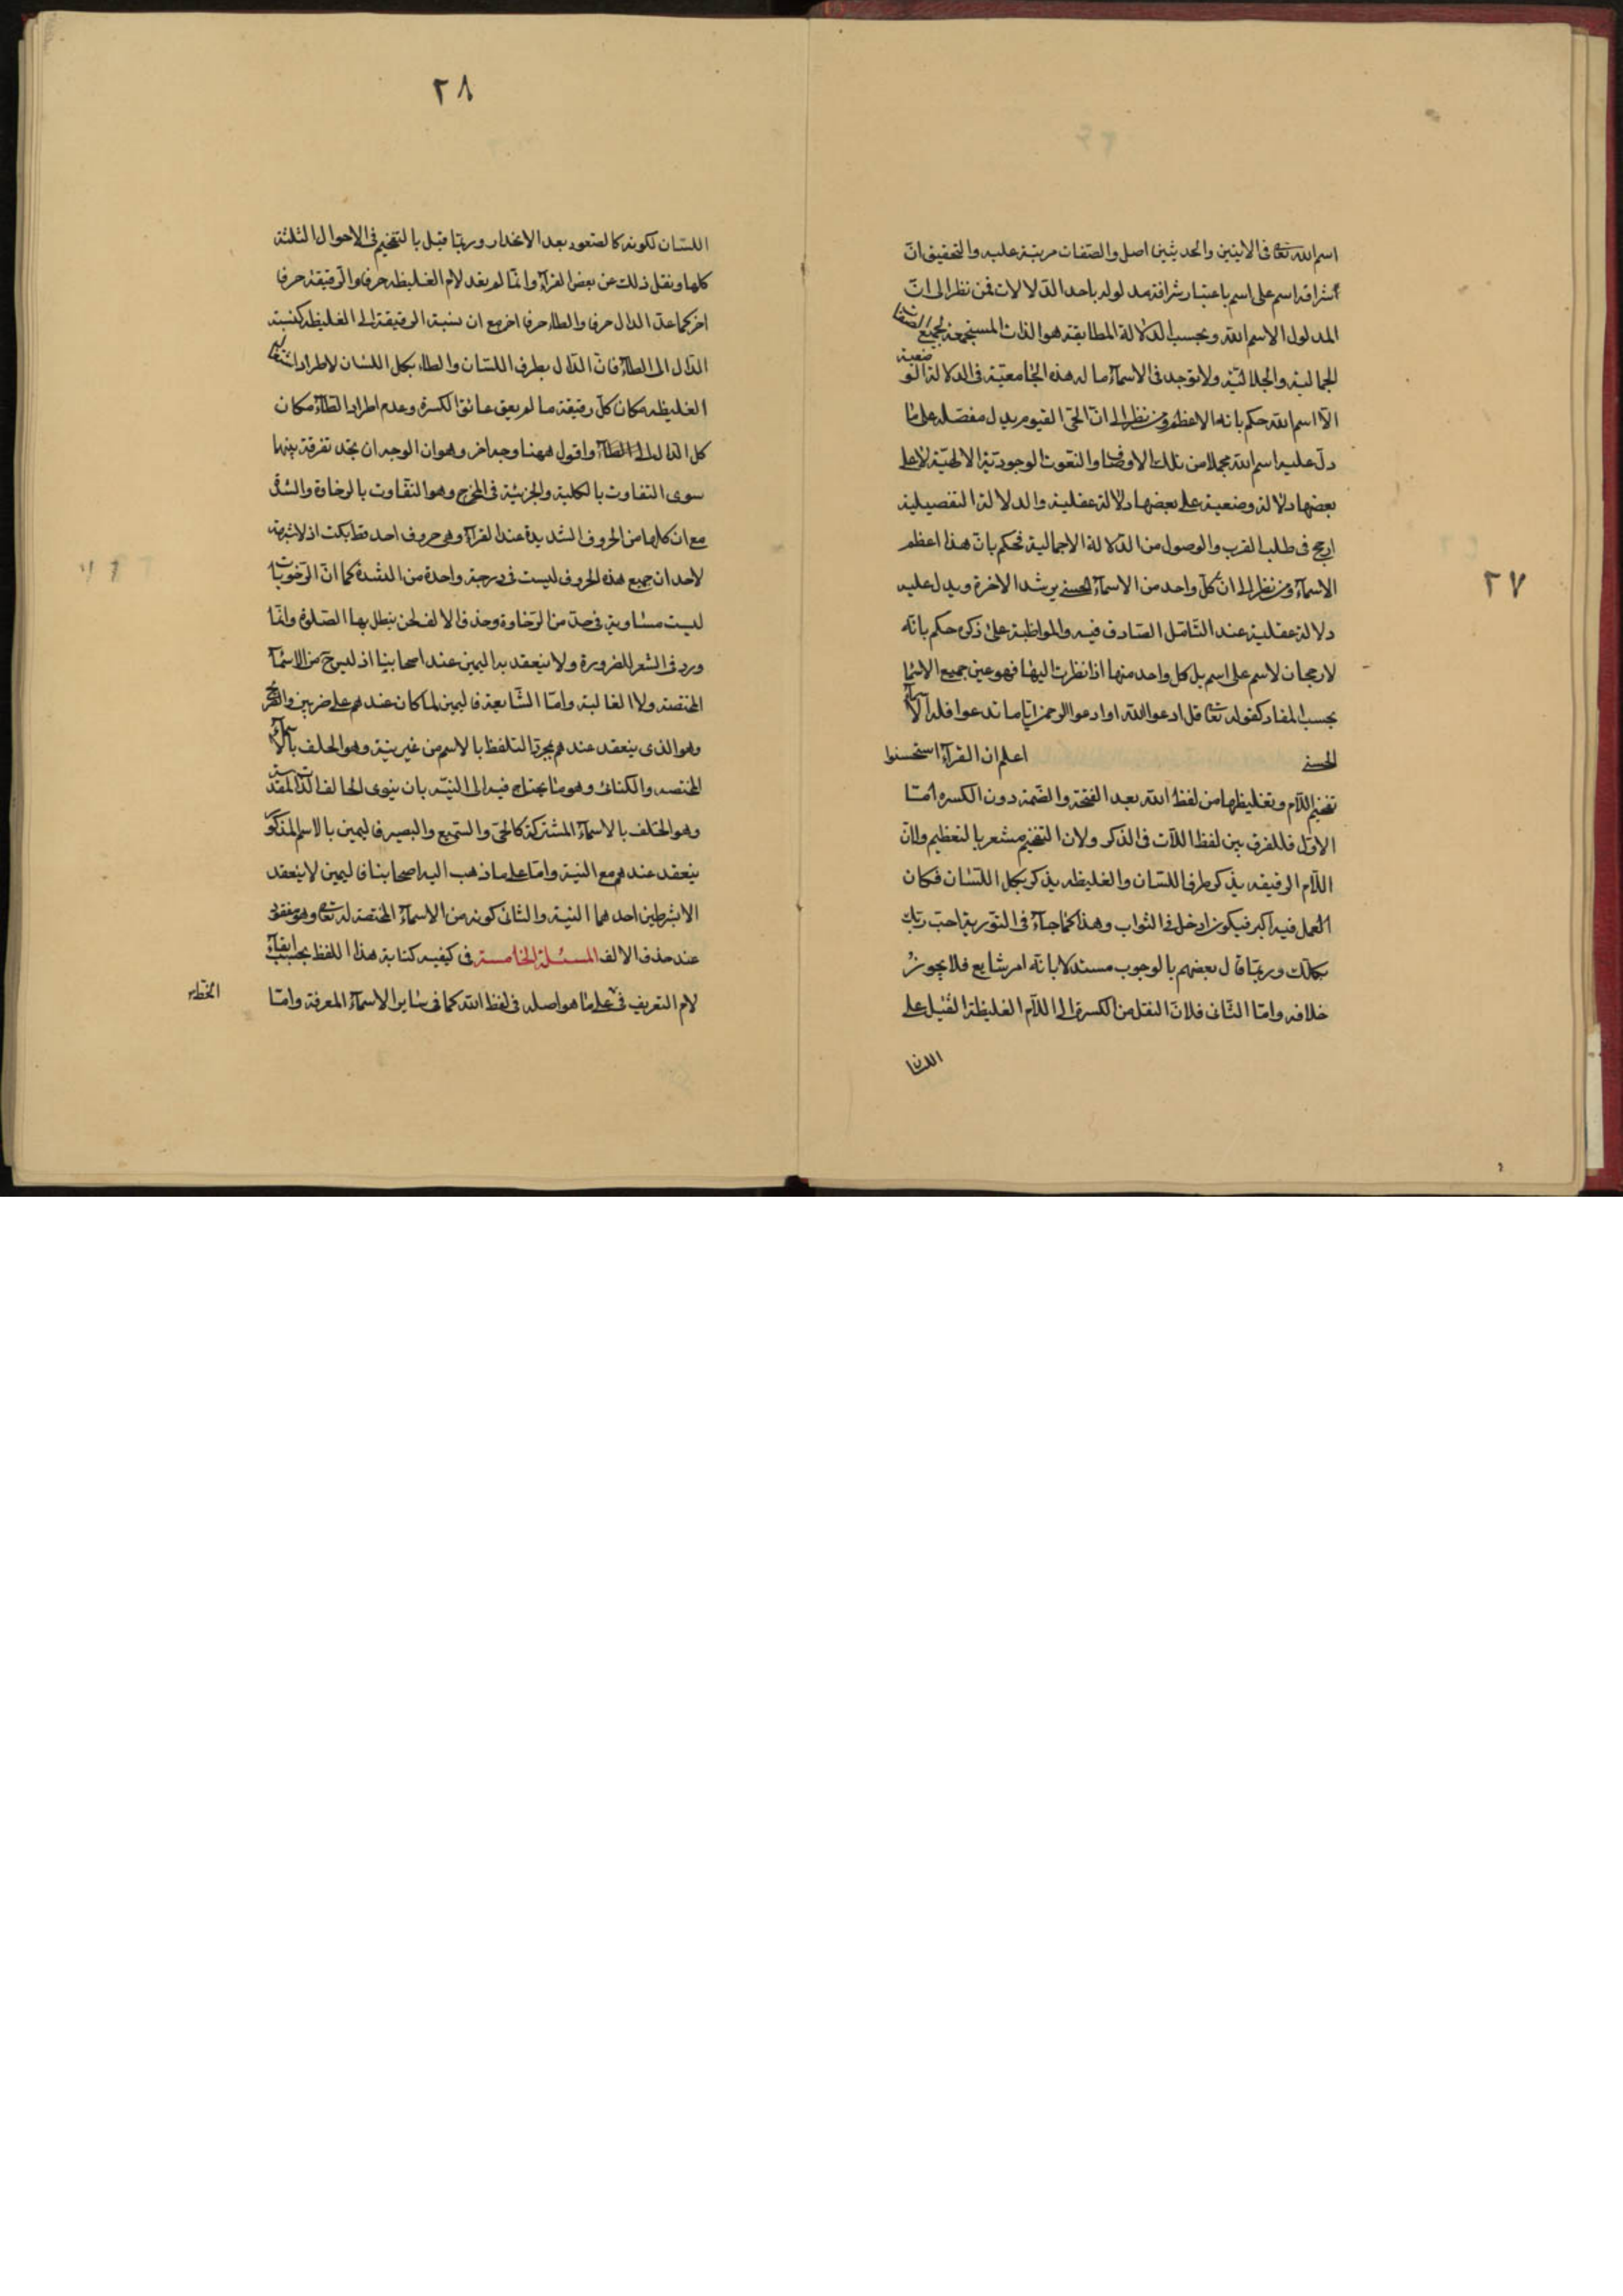 ٢٧
اسم الله تعالى فى الايتين والحديثين اصل والصفات مرتبة عليه والتحقيق ان
شرافة اسم على اسم باعتبار شرافة مدلوله باحد الدلالات فمن نظر الى ان
المدلول الاسم الله وبحسب الدلالة المطابقة هو الذات المستجمعة لجميع الصفات
الجمالية والجلالية ولا توجد فى الاسماء ما له هذه الجامعية فى الدلالة الوضعية
الا اسم الله حكم بانه الاعظم ومن نظر الى ان الحى القيوم يدل مفصلة على ما
دل عليه اسم الله مجملا من تلك الاوصاف والنعوت الوجودية الالهية لا على
بعضها دلالة وضعية على بعضها دلالة عقلية والدلالة التفصيلية
ارجح فى طلب القرب والوصول من الدلالة الاجمالية فحكم بان هذا اعظم
الاسماء ومن نظر الى ان كل واحد من الاسماء الحسنى يرشد الاخرة ويدل عليه
دلالة عقلية عند التامل الصادق فيه والمواظبة على ذكره حكم بانه
لا رجحان لاسم على اسم بل كل واحد منها اذا نظرت اليها فهو عين جميع الاسما
بحسب المفاد كقوله تعالى قل ادعوا الله او ادعوا الرحمن ايا ما تدعوا فله الاسماء
الحسنى اعلم ان القراء استحسنوا
تفخيم اللام وتغليظها من لفظ الله بعد الفتحة والضمة دون الكسرة اما
الاول فللفرق بين لفظ اللات فى الذكر ولان التفخيم مشعر بالتعظيم ولان
اللام الرقيقه يذكر بطرف اللسان والغليظه يذكر بكل اللسان فكان
العمل فيه اكبر فيكون ادخل فى الثواب وهذا كما جاء فى التورية احب ربك
بكلك وربما قال بعضهم بالوجوب مستدلا بانه امر شايع فلا يجوز
خلافه واما الثانى فلان النقل من الكسرة الى اللام الغليظة الثقيل على
اللسان
٢٨
اللسان لكونه كالصعود بعد الانحدار وربما قيل بالتفخيم فى الاحوال الثلثة
كلها ونقل ذلك عن بعض القراء وانما لم يعد لام الغليظه حرفا والرقيقة حرفا
اخر كما عد الدال حرفا والطاء حرفا اخر مع ان نسبة الرقيقة الى الغليظه كنسبة
الدال الى الطاء فان الدال بطرف اللسان والطاء بكل اللسان لاطراد استعمال
الغليظه مكان كل رقيقة ما لم يعق عائق الكسرة وعدم اطراد الطاء مكان
كل الدال واقول ههنا وجه اخر وهو ان الوجدان يجد تفرقة بينهما
سوى التفاوت بالكلية والجزئية فى المخرج وهو التفاوت بالرخاوة والشدة
مع ان كلها من الحروف الشديدة عند القراء وهى حروف اجد قط بكت اذ لا شبهة
لاحد ان جميع هذه الحروف ليست فى درجة واحدة من الشدة كما ان الرخويات
ليست متساوية فى حد من الرخاوة وحذف الالف لحن يبطل بها الصلوة وانما
ورد فى الشعر للضرورة ولا ينعقد به اليمين عند اصحابنا اذ ليس من الاسماء
المختصة ولا الغالبة واما الشافعية فاليمين لما كان عندهم على ضربين
وهو الذى ينعقد عندهم بمجرد التلفظ بالاسم من غير نية وهو الحلف بالاسماء
المختصه والكنائى وهو ما يحتاج فيه الى النية بان ينوى الحالف الذات المقدسة
وهو الحلف بالاسماء المشتركة كالحى والسميع والبصير فاليمين بالاسم المذكور
ينعقد عندهم مع النية واما على ما ذهب اليه اصحابنا فاليمين لا ينعقد
الا بشرطين احدهما النية والثانى كونه من الاسماء المختصة له تعالى وهو مفقود
عند حذف الالف المسئلة الخامسة فى كيفيه كتابة هذا اللفظ يجب ابقاء
لام التعريف فى على ما هو اصله فى لفظ الله كما فى ساير الاسماء المعرفة واما
الخط